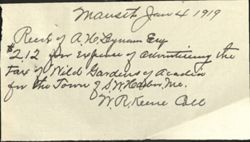 Manset Jan 4 1919
Recd of A. H. Lynam Esq
$2.12 for expense of advertising the
tax of Wild Gardens of Acadia
for the Town of S. W. Harbor, Me.
W. R. Keene Coll